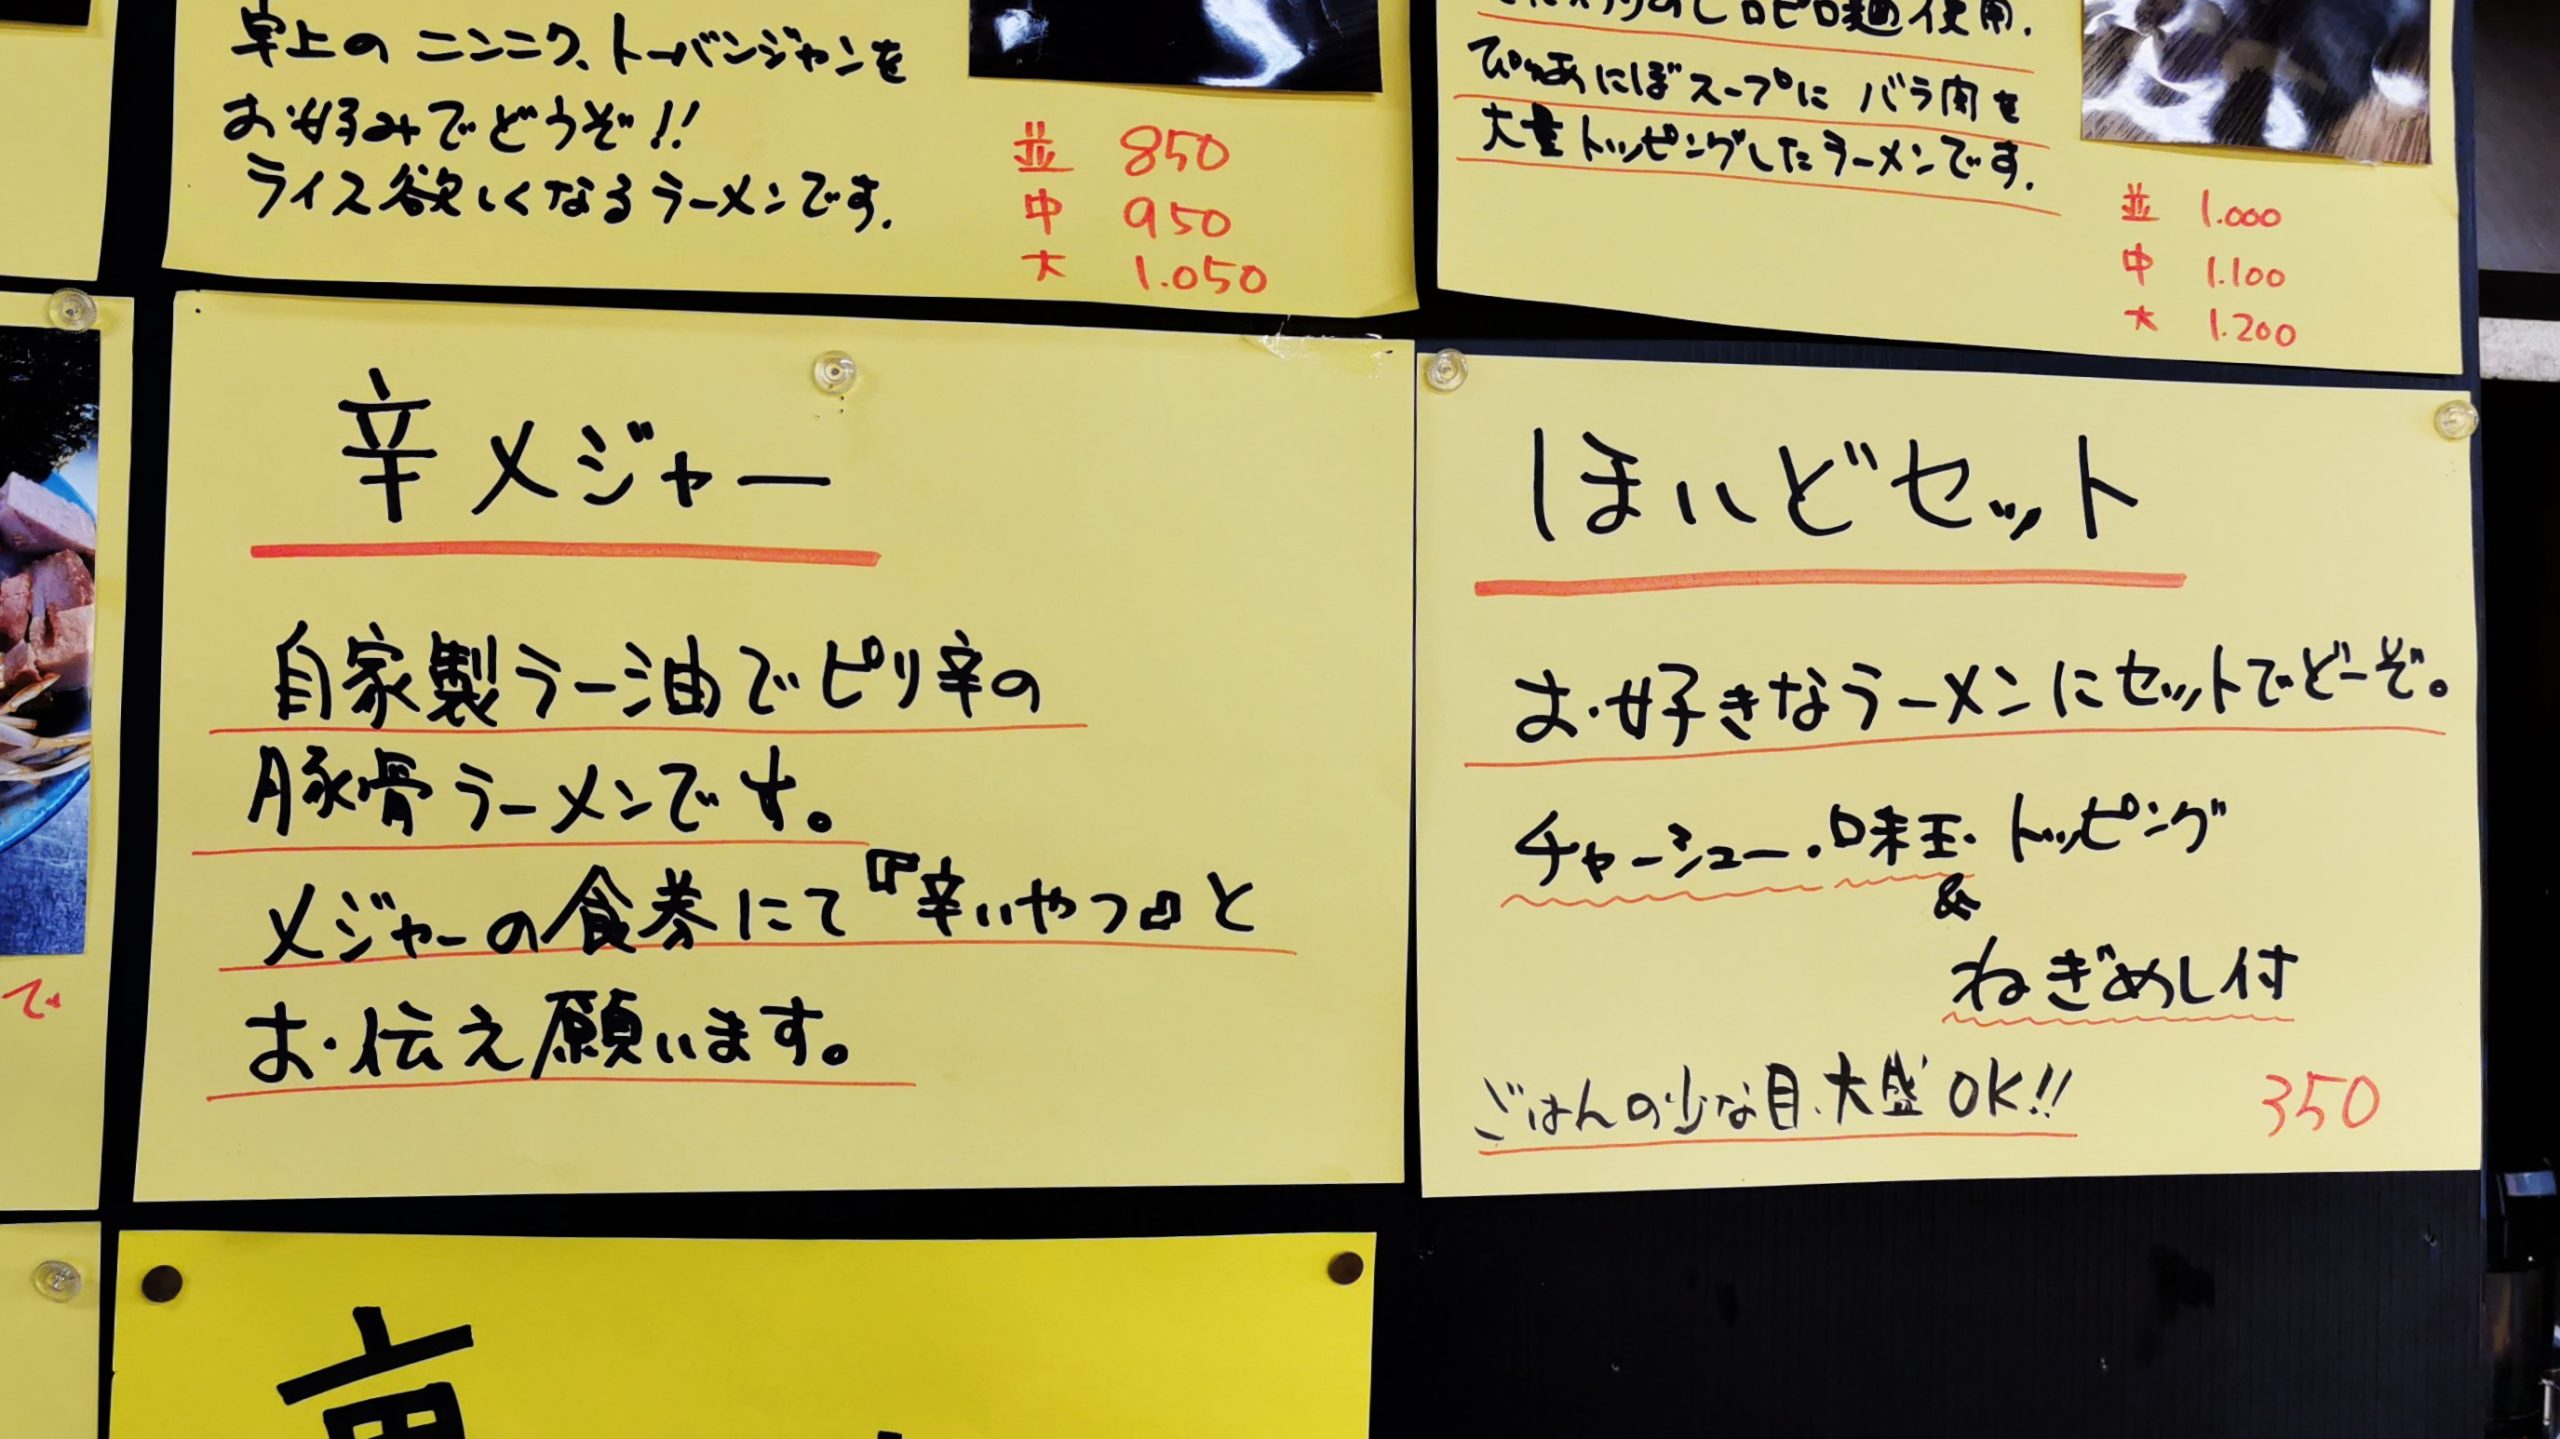 卓上のニンニク、トーバンジャンを
お好みでどうぞ!!
ライス欲しくなるラーメンです.
並 850
中 950
大 1.050
ピロピロ麺使用.
ぴゅあにぼスープに バラ肉を
大量トッピングしたラーメンです.
並 1.000
中 1.100
大 1.200
辛メジャー
自家製ラー油でピリ辛の
豚骨ラーメンです。
メジャーの食券にて『辛いやつ』と
お伝え願います。
ほいどセット
お好きなラーメンにセットでどーぞ。
チャーシュー・味玉・トッピング
&
ねぎめし付
ごはんの少な目、大盛OK!!
350
で